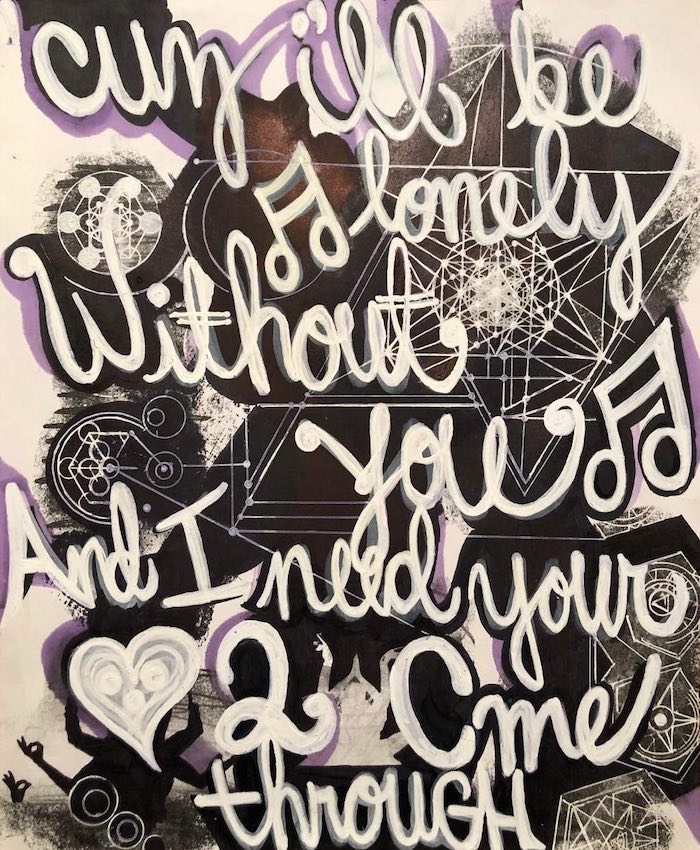 cuz i'll be
♫ lonely
Without
you ♫
And I need your
♥ 2 C me
throuGH